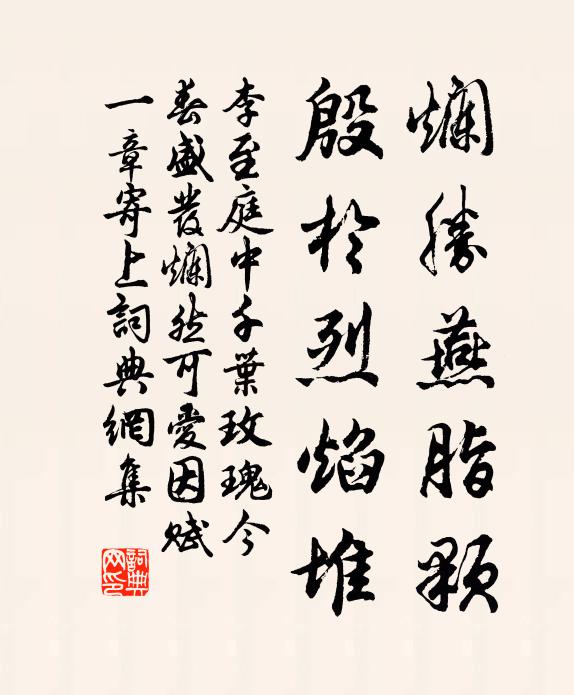 爛勝燕脂顆
殷於烈焰堆
李至庭中千葉玫瑰今
春盛發爛然可愛因賦
一章寄上詞典網集
詞典網印